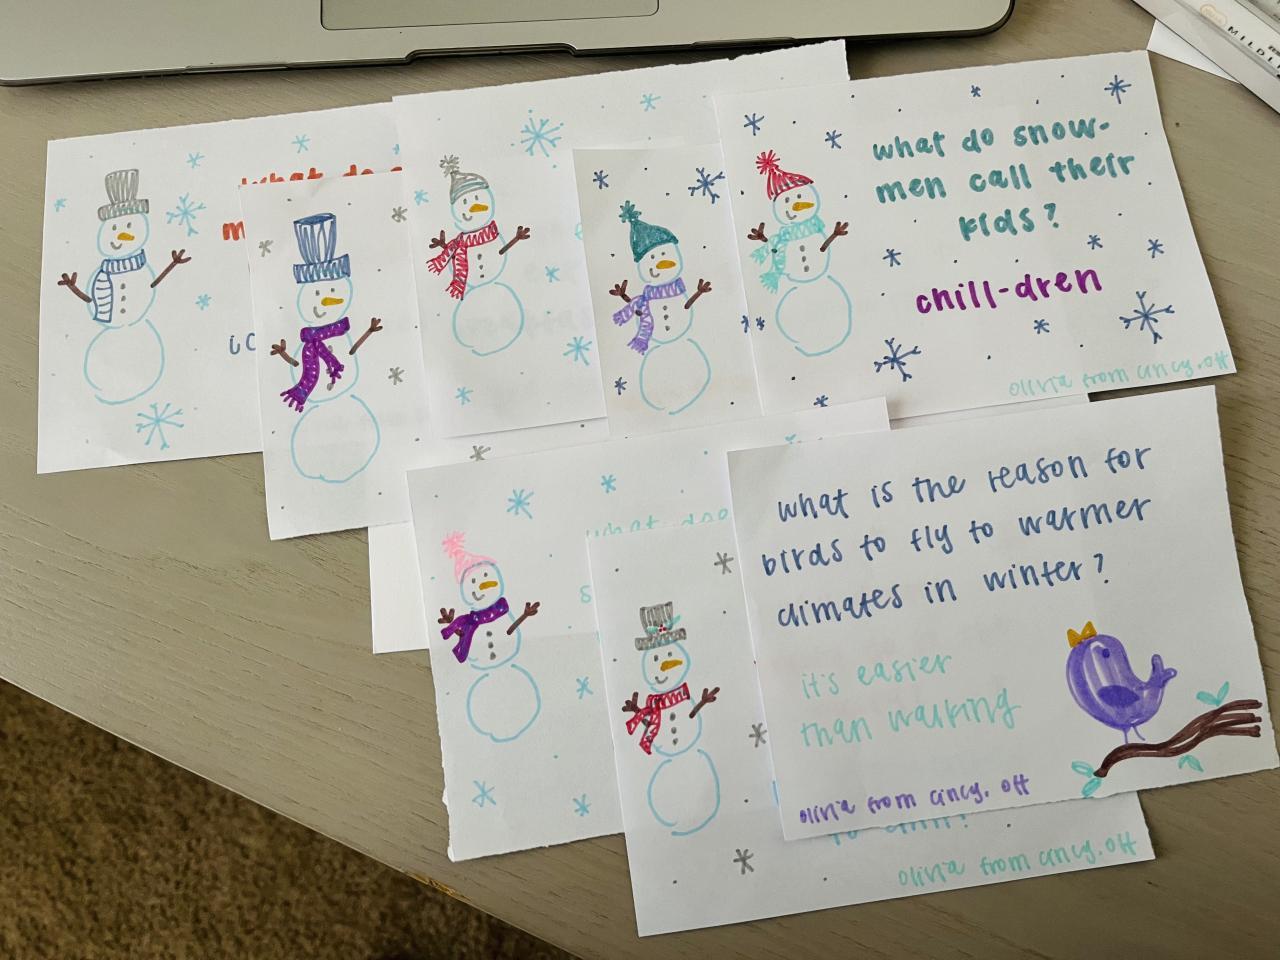 what do
m
ic
what do snow-
men call their
kids?
chill-dren
olivia from cincy, oh
what does
s
what is the reason for
birds to fly to warmer
climates in winter?
it's easier
than walking
olivia from cincy, oh
to
olivia from cincy, oh
MILDLI